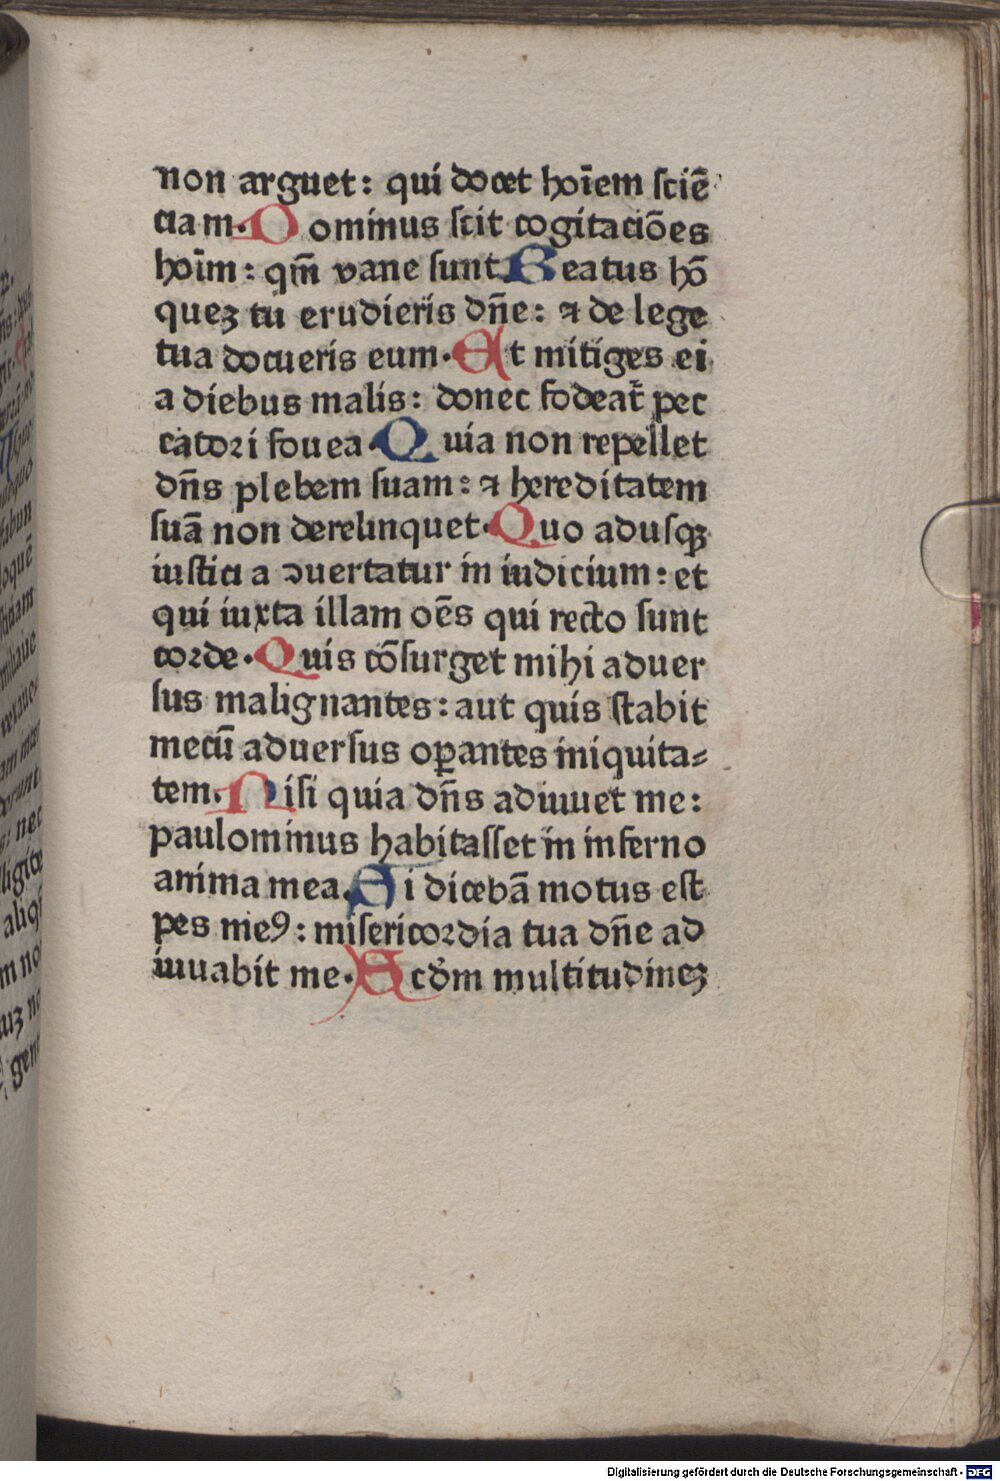 non arguet: qui docet hoı̄em sciē
ciam. Dominus scit cogitaciōes
hoı̄m: qm̄ vane sunt. Beatus hō
quez tu erudieris dn̄e: ⁊ de lege
tua docueris eum. Et mitiges ei
a diebus malis: donec fodeat̄ pec
catori fouea. Quia non repellet
dn̄s plebem suam: ⁊ hereditatem
suā non derelinquet. Quo adusqꝫ
iusticia ↄuertatur in iudicium: et
qui iuxta illam oēs qui recto sunt
corde. Quis cōsurget mihi aduer
sus malignantes: aut quis stabit
mecū aduersus oꝑantes iniquita⸗
tem. Nisi quia dn̄s adiuuet me:
paulominus habitasset in inferno
anima mea. Si dicebā motus est
pes meꝯ: misericordia tua dn̄e ad
iuuabit me. Scd̄m multitudinez
Digitalisierung gefördert durch die Deutsche Forschungsgemeinschaft - DFG